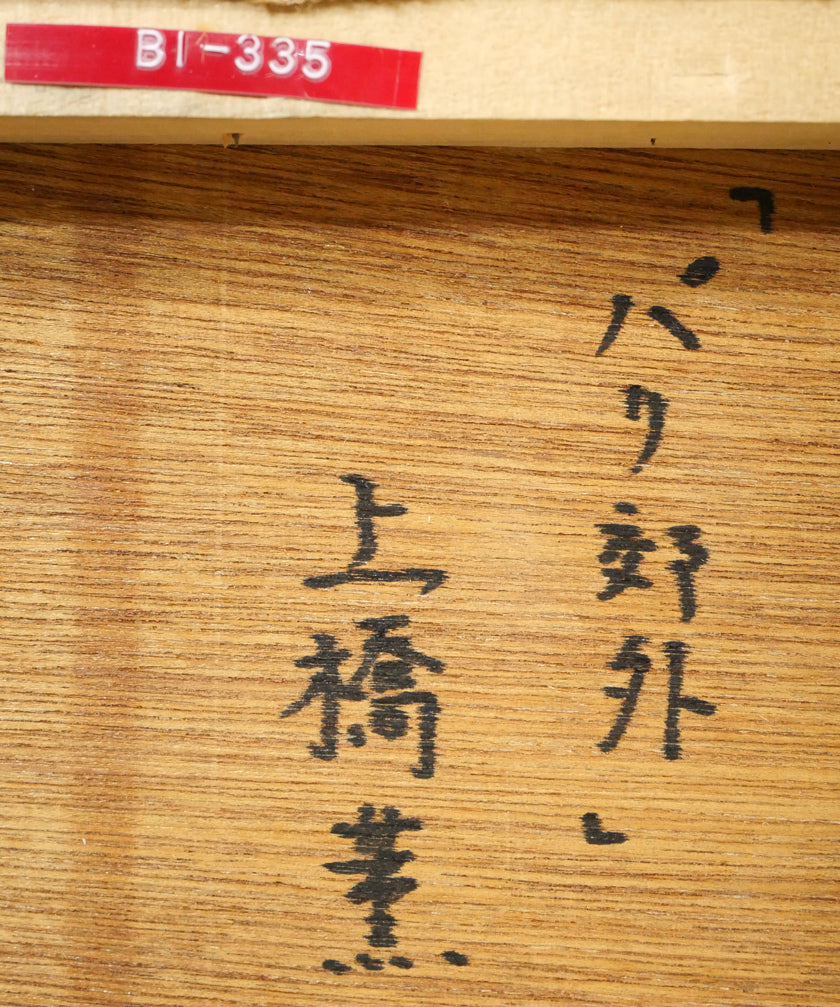 BI-335
「パリ郊外」
上橋薫